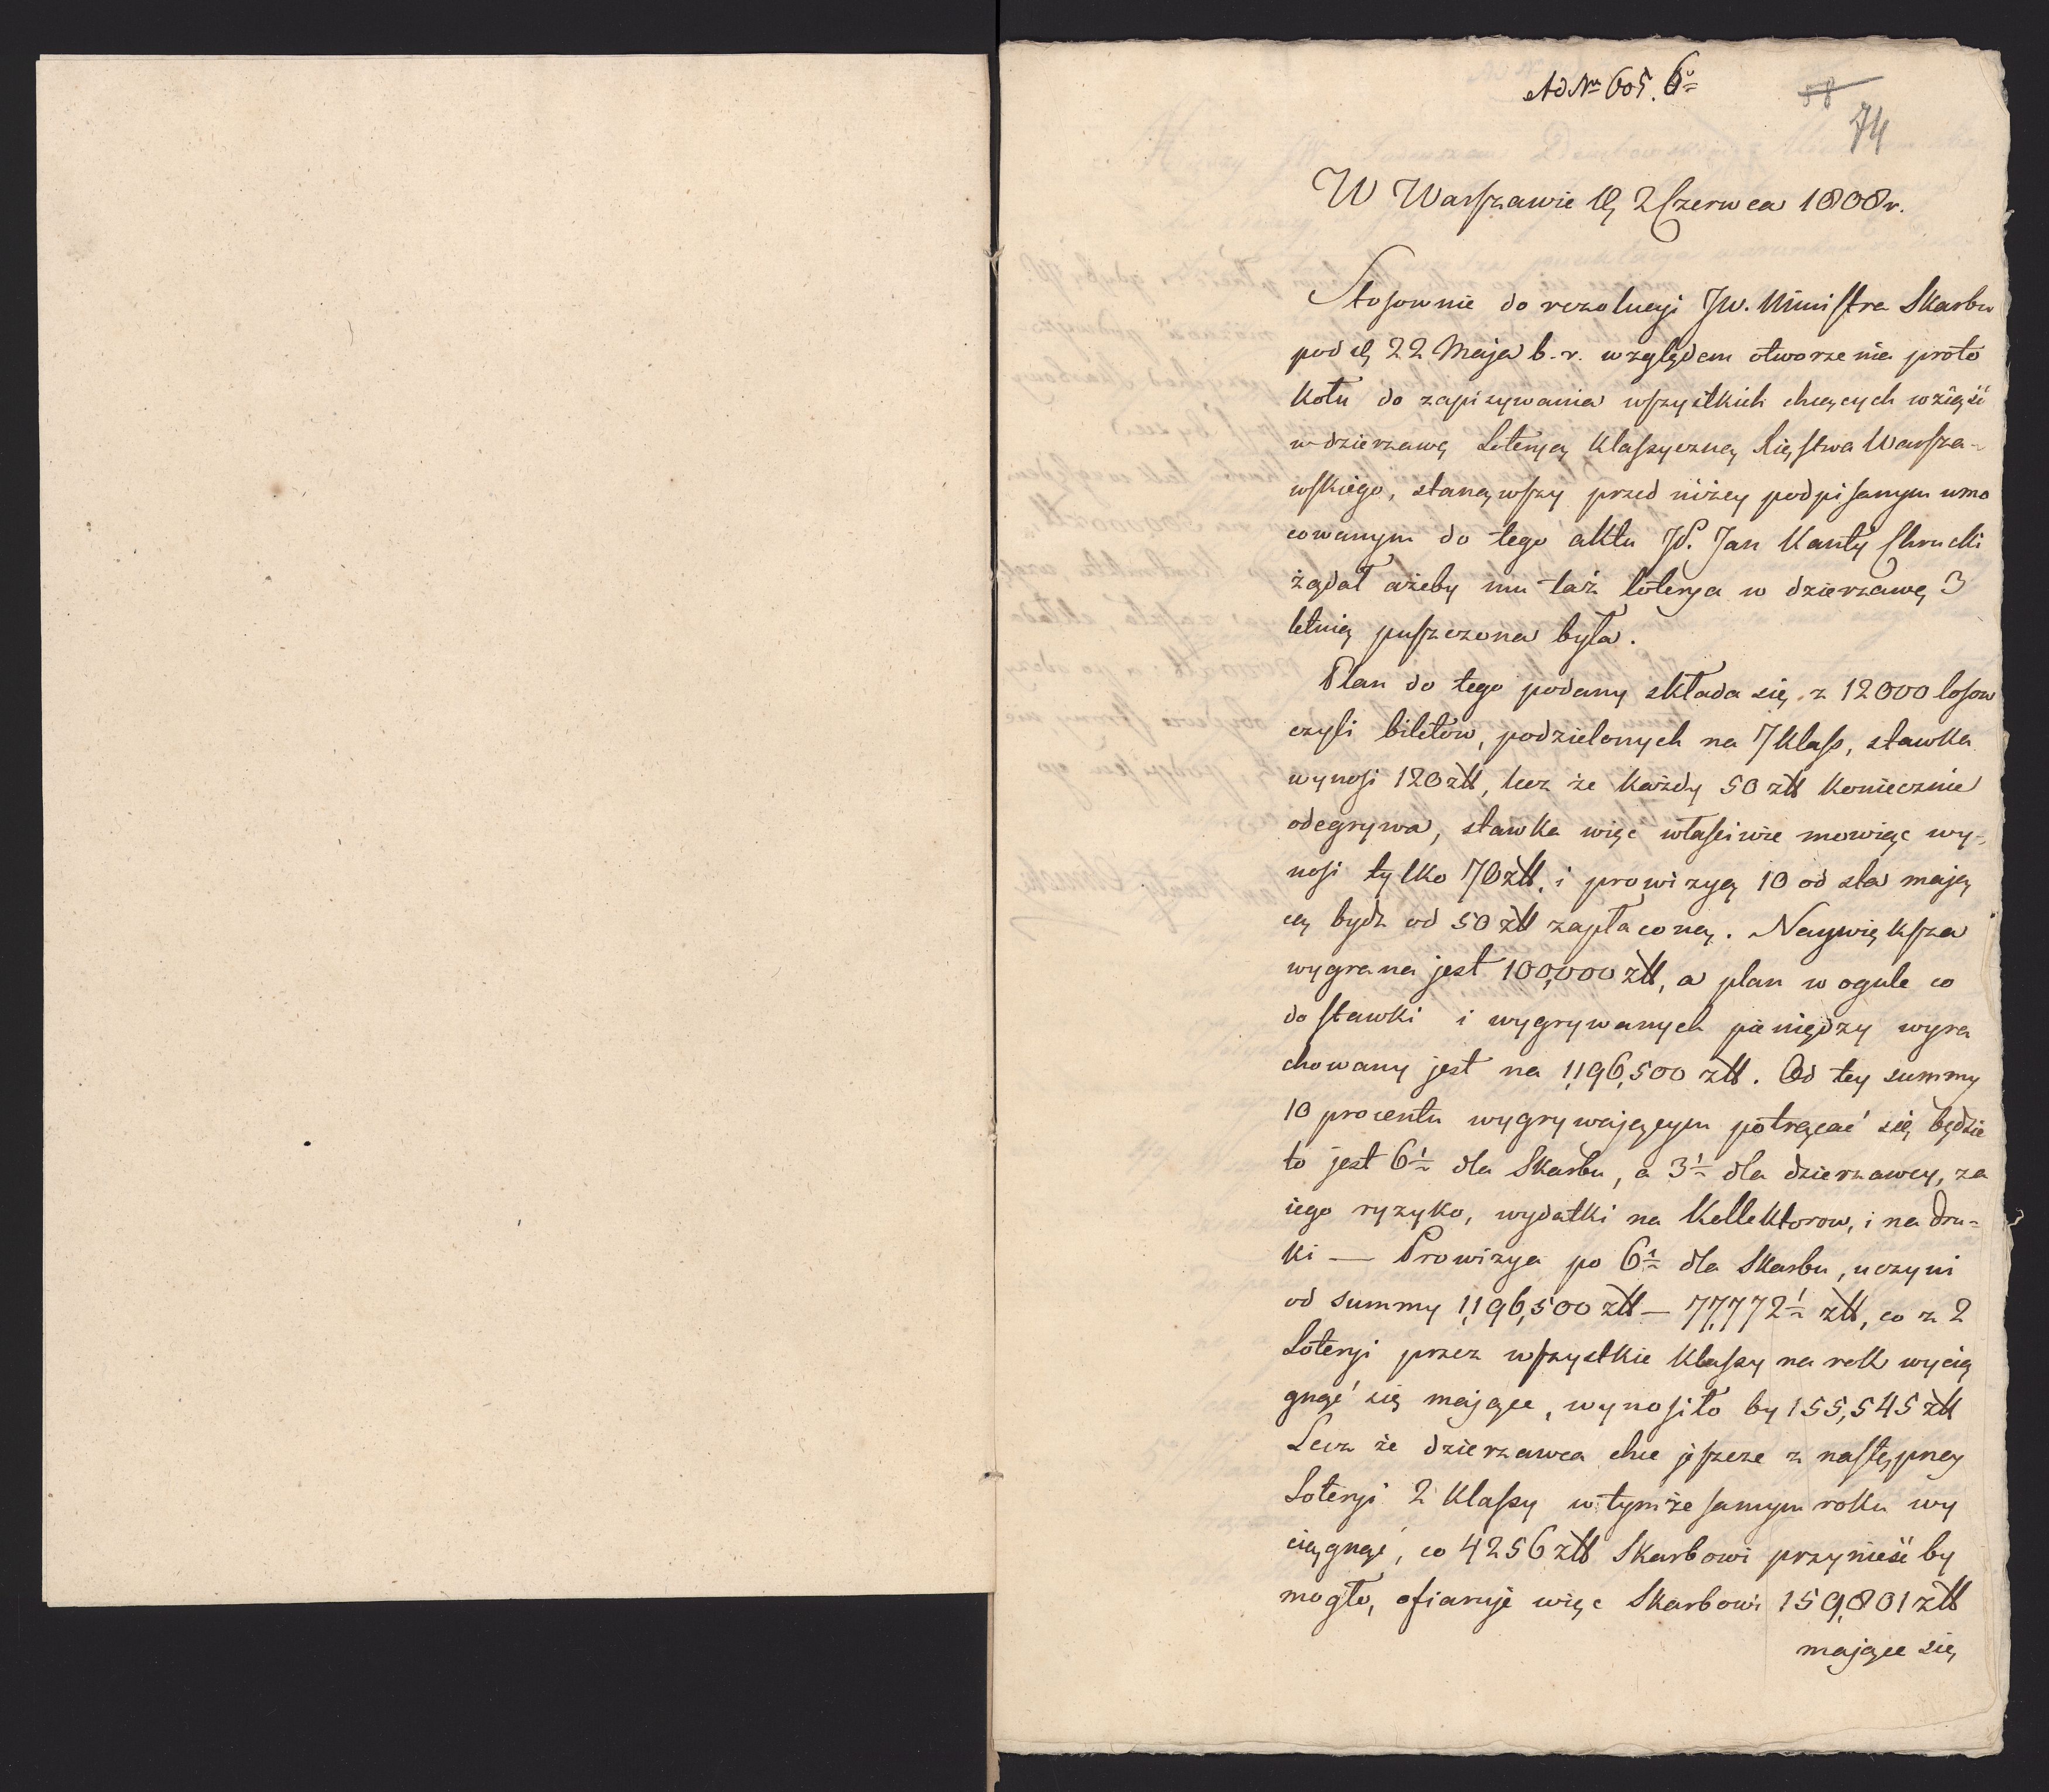 Ad Nr 605. 6o
58
74
W Warszawie d. 2 Czerwca 1808 r.
Stosownie do rezolucyi JW. Ministra Skarbu
pod d. 22 Maja b. r. względem otworzenia proto
kołu do zapisywania wszystkich chcących wziąść
w dzierzawę Loteryą Klassyczną Xięstwa Warsza-
wskiego, stanąwszy przed niżey podpisanym umo
cowanym do tego aktu JP. Jan Kanty Chrucki
żądał ażeby mu taż loterya w dzierzawę 3
letnią puszczona była.
Plan do tego podany składa się z 12000 losow
czyli biletow, podzielonych na 7 klass, stawka
wynosi 120 złł, lecz że każdy 50 złł koniecznie
odegrywa, stawka więc właściwie mowiąc wy-
nosi tylko 70 złł, i prowizyą 10 od sta mają
cą bydz od 50 złł zapłaconą. Naywiększa
wygrana jest 100,000 złł, a plan w ogule co
do stawki i wygrywanych pieniędzy wyra
chowany jest na 1,196,500 złł. Od tey summy
10 procentu wygrywającym potrącać się będzie
to jest 6½ dla Skarbu, a 3½ dla dzierzawcy, za
iego ryzyko, wydatki na Kollektorow, i na dru-
ki — Prowizya po 6½ dla Skarbu, uczyni
od summy 1,196,500 złł — 77,772½ złł, co z 2
Loteryi przez wszystkie klassy na rok wycią
gnąć się mające, wynosiło by 155,545 złł
Lecz że dzierzawca chce jeszcze z następney
Loteryi 2 klassy w tymże samym roku wy
ciągnąć, co 4256 złł Skarbowi przynieść by
mogło, ofiaruje więc Skarbowi 159,801 złł
mające się